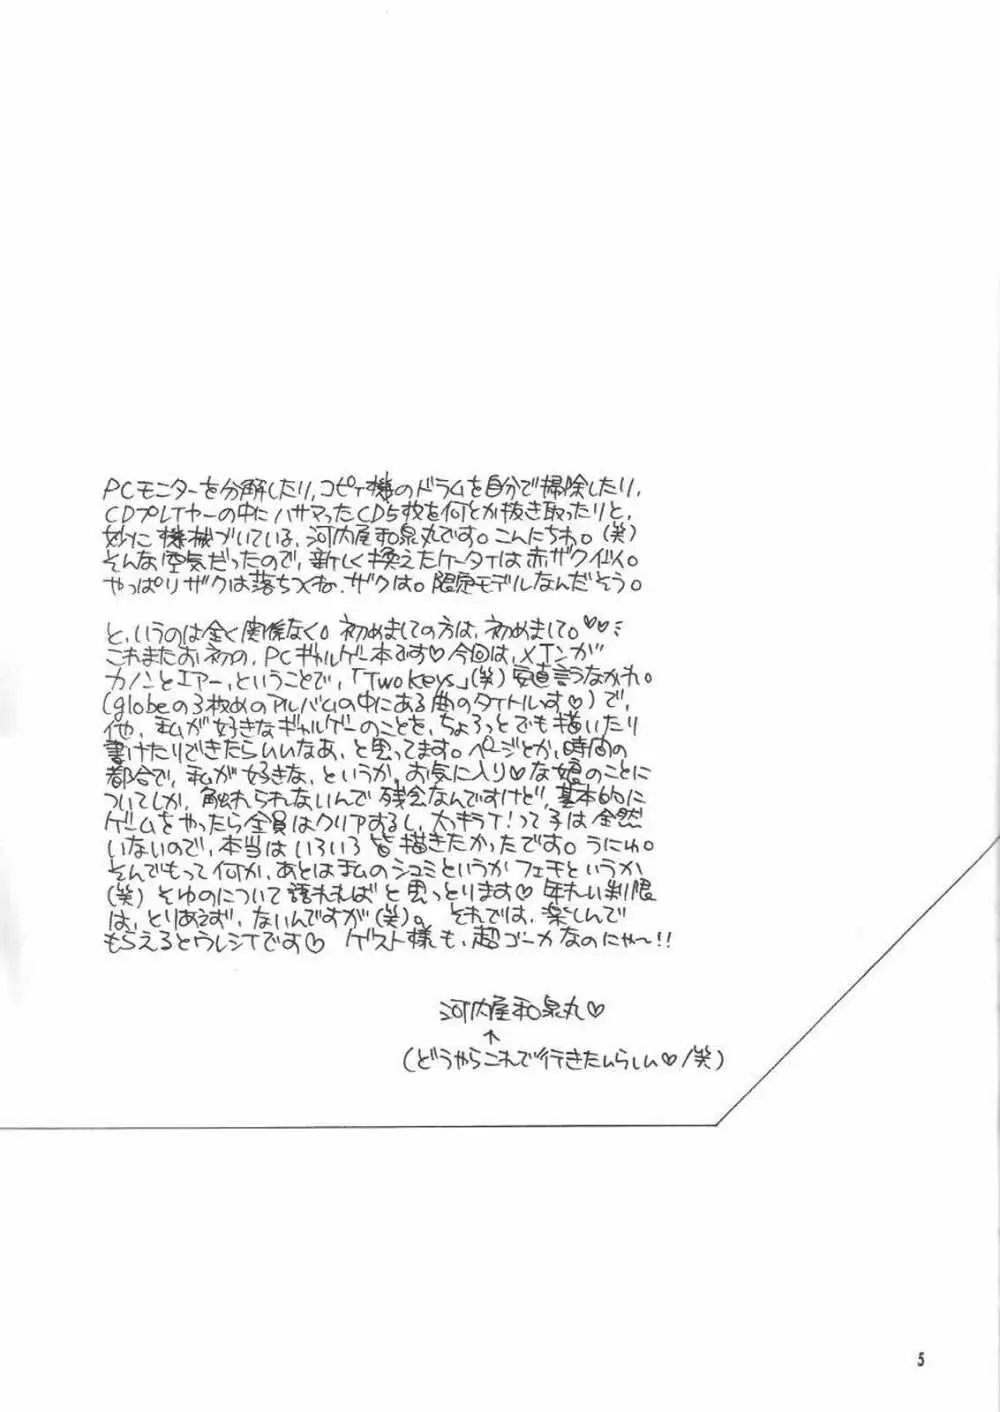 PCモニターを分解したり、コピィ機のドラムを自分で掃除したり、
CDプレイヤーの中にハサマったCD5枚を何とか抜き取ったりと、
妙に機械づいている、河内屋和泉丸です。こんにちわ。(笑)
そんな空気だったので、新しく換えたケータイは赤ザク仕様。
やっぱりザクは落ちつくね、ザクは。限定モデルなんだそう。
と、いうのは全く関係なく。初めましての方は、初めまして。♡♡
これまたお初の、PCギャルゲー本るす♡今回は、メインが
カノンとエアー、ということで、「Two Keys」(笑)安直言うなかれ。
(globeの3枚めのアルバムの中にある曲のタイトルっす♡)で、
他、私が好きなギャルゲーのことを、ちょろっとでも描いたり
書けたりできたらいいなあ、と思ってます。ページとか、時間の
都合で、私が好きな、というか、お気に入り♡な娘のことに
ついてしか、触れられないんで残念なんですけど、基本的に
ゲームをやったら全員はクリアするし、大っキライ!って子は全然
いないので、本当はいろいろ皆描きたかったです。うにゅ。
そんでもって何か、あとは私のシュミというかフェチというか
(笑)そゆのについて語れればと思っとります♡年れい制限
は、とりあえず、ないんですが(笑)。それでは、楽しんで
もらえるとウレシイです♡ ゲスト様も、超ゴーカなのにゃ〜!!
河内屋和泉丸♡
↑
(どうやらこれで行きたいらしい♡/笑)
5